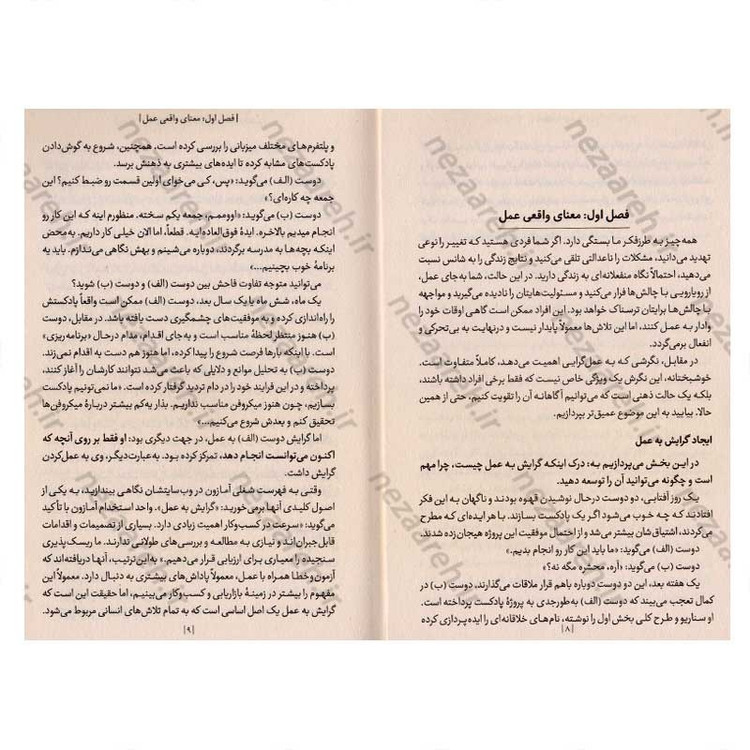 فصل اول: معنای واقعی عمل
همه‌چیز به طرزفکر ما بستگی دارد. اگر شما فردی هستید که تغییر را نوعی
تهدید می‌دانید، مشکلات را ناعدالتی تلقی می‌کنید و نتایج زندگی را به شانس نسبت
می‌دهید، احتمالاً نگاه منفعلانه‌ای به زندگی دارید. در این حالت، شما به‌جای عمل،
از رویارویی با چالش‌ها فرار می‌کنید و مسئولیت‌هایتان را نادیده می‌گیرید و مواجهه
با چالش‌ها برایتان ترسناک خواهد بود. این افراد ممکن است گاهی اوقات خود را
وادار به عمل کنند، اما این تلاش‌ها معمولاً پایدار نیست و درنهایت به بی‌تحرکی و
انفعال برمی‌گردد.
در مقابل، نگرشی که به عمل‌گرایی اهمیت می‌دهد، کاملاً متفاوت است.
خوشبختانه، این نگرش یک ویژگی خاص نیست که فقط برخی افراد داشته باشند،
بلکه یک حالت ذهنی است که می‌توانیم آگاهانه آن را تقویت کنیم، حتی از همین
حالا. بیایید به این موضوع عمیق‌تر بپردازیم.
ایجاد گرایش به عمل
در این بخش می‌پردازیم به: درک اینکه گرایش به عمل چیست، چرا مهم
است و چگونه می‌توانید آن را توسعه دهید.
یک روز آفتابی، دو دوست درحال نوشیدن قهوه بودند و ناگهان به این فکر
افتادند که چه خوب می‌شود اگر یک پادکست بسازند. با هر ایده‌ای که مطرح
می‌کردند، اشتیاق‌شان بیشتر می‌شد و از احتمال موفقیت این پروژه هیجان‌زده شدند.
دوست (الف) می‌گوید: «ما باید این کار رو انجام بدیم.»
دوست (ب) می‌گوید: «آره، محشره مگه نه؟»
یک هفته بعد، این دو دوست دوباره باهم قرار ملاقات می‌گذارند، دوست (ب) در
کمال تعجب می‌بیند که دوست (الف) به‌طورجدی به پروژهٔ پادکست پرداخته است.
او سناریو و طرح کلی بخش اول را نوشته، نام‌های خلاقانه‌ای را ایده‌پردازی کرده
|۸|
|فصل اول: معنای واقعی عمل|
و پلتفرم‌های مختلف میزبانی را بررسی کرده است. همچنین، شروع به گوش‌دادن
پادکست‌های مشابه کرده تا ایده‌های بیشتری به ذهنش برسد.
دوست (الف) می‌گوید: «پس، کی می‌خوای اولین قسمت رو ضبط کنیم؟ این
جمعه چه کاره‌ای؟»
دوست (ب) می‌گوید: «اوووممم، جمعه یکم سخته. منظورم اینه که این کار رو
انجام میدیم بالاخره. ایدهٔ فوق‌العاده‌ایه. قطعاً، اما الان خیلی کار داریم. به‌محض
اینکه بچه‌ها به مدرسه برگردند، دوباره می‌شینم و بهش نگاهی می‌ندازم. باید یه
برنامهٔ خوب بچینیم...»
می‌توانید متوجه تفاوت فاحش بین دوست (الف) و دوست (ب) شوید؟
یک ماه، شش ماه یا یک سال بعد، دوست (الف) ممکن است واقعاً پادکستش
را راه‌اندازی کرده و به موفقیت‌های چشمگیری دست یافته باشد. در مقابل، دوست
(ب) هنوز منتظر لحظهٔ مناسب است و به‌جای اقدام، مدام درحال «برنامه‌ریزی»
است. با اینکه بارها فرصت شروع را پیدا کرده، اما هنوز هم دست به اقدام نمی‌زند.
دوست (ب) به تحلیل موانع و دلایلی که باعث می‌شد نتوانند کارشان را آغاز کنند،
پرداخته و در این فرایند خود را در دام تردید گرفتار کرده است. «ما نمی‌تونیم پادکست
بسازیم، چون هنوز میکروفن مناسب نداریم. بذار یه‌کم بیشتر دربارهٔ میکروفن‌ها
تحقیق کنم و بعدش شروع می‌کنیم...»
اما گرایش دوست (الف) به عمل، در جهت دیگری بود: او فقط بر روی آنچه که
اکنون می‌توانست انجام دهد، تمرکز کرده بود. به‌عبارت‌دیگر، وی به عمل‌کردن
گرایش داشت.
وقتی به فهرست شغلی آمازون در وب‌سایتشان نگاهی بیندازید، به یکی از
اصول کلیدی آنها برمی‌خورید: «گرایش به عمل». واحد استخدام آمازون با تأکید
می‌گوید: «سرعت در کسب‌وکار اهمیت زیادی دارد. بسیاری از تصمیمات و اقدامات
قابل‌جبران‌اند و نیازی به مطالعه و بررسی‌های طولانی ندارند. ما ریسک‌پذیری
سنجیده را معیاری برای ارزیابی قرار می‌دهیم.» به‌این‌ترتیب، آنها دریافته‌اند که
آزمون‌وخطا همراه با عمل، معمولاً پاداش‌های بیشتری به دنبال دارد. معمولاً این
مفهوم را بیشتر در زمینهٔ بازاریابی و کسب‌وکار می‌بینیم، اما حقیقت این است که
گرایش به عمل یک اصل اساسی است که به تمام تلاش‌های انسانی مربوط می‌شود.
|۹|
nezaareh.ir